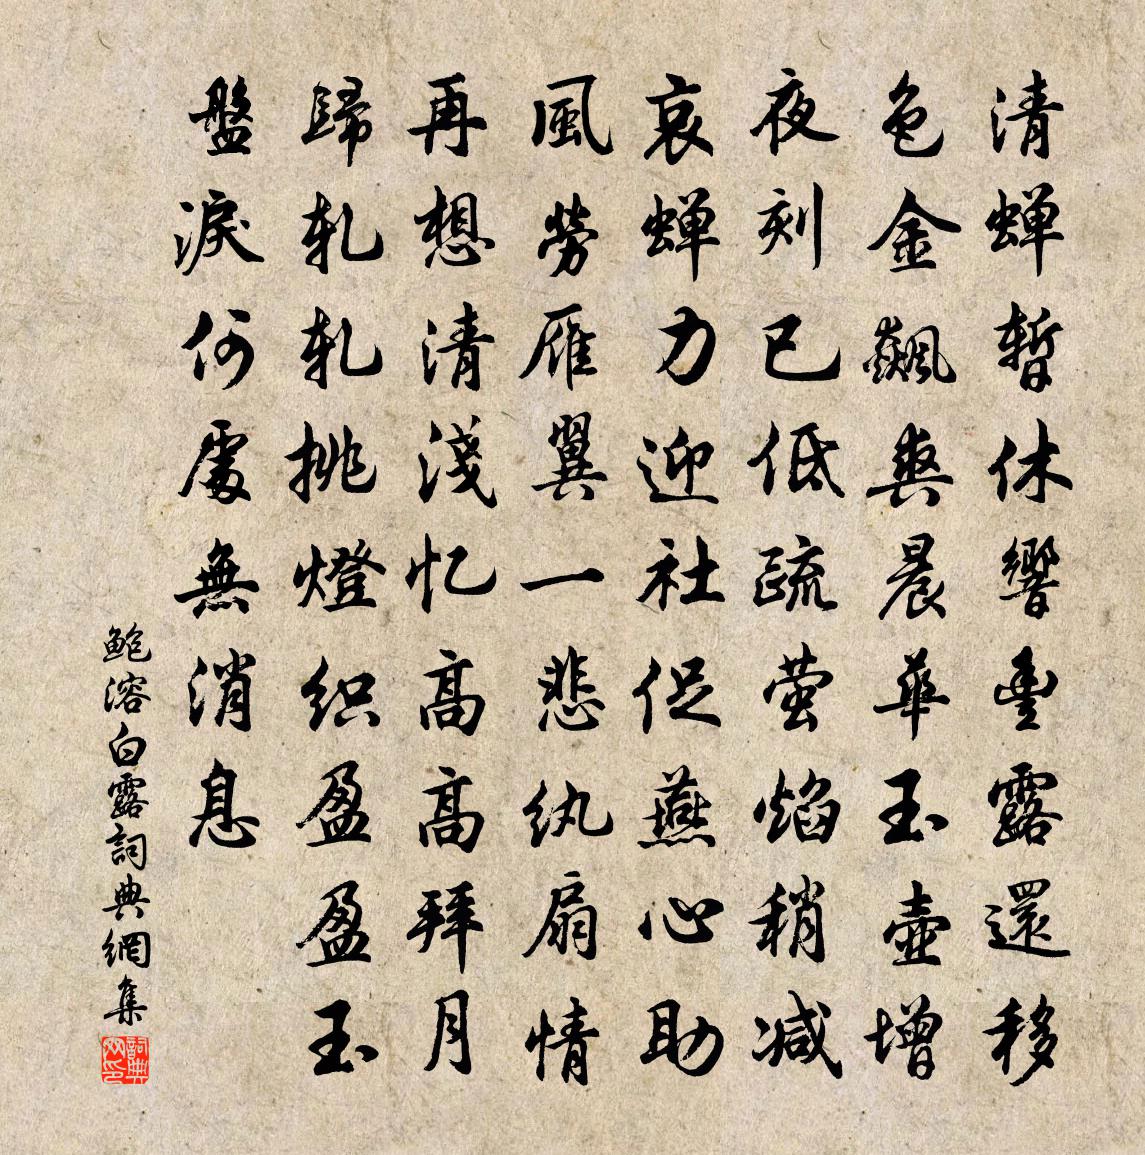 清蝉暫休響豐露還移
色金飆爽晨華玉壺增
夜刻已低疏萤焰稍减
哀蝉力迎社促燕心助
風勞雁翼一悲纨扇情
再想清淺忆高高拜月
歸軋軋挑燈织盈盈玉
盤淚何處無消息
鮑溶白露詞典網集
詞典网印